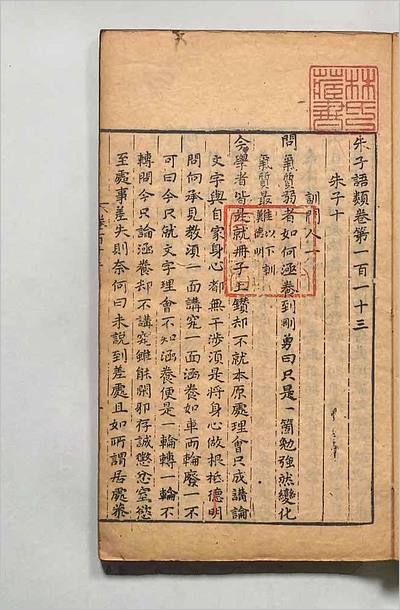 朱子語類卷第一百一十三
朱子十
訓門人一
問氣質弱者如何涵養到剛勇曰只是一箇勉强然變化
氣質最難以下訓德明
今學者皆是就冊子上鑽却不就本原處理會只成講論
文字與自家身心都無干涉須是將身心做根柢德明
問向承見教須一面講究一面涵養如車兩輪廢一不
可曰今只就文字理會不知涵養便是一輪轉一輪不
轉問今只論涵養却不講究雖能閑邪存誠懲忿窒慾
至處事差失則奈何曰未說到差處且如所謂居處恭
林氏藏書